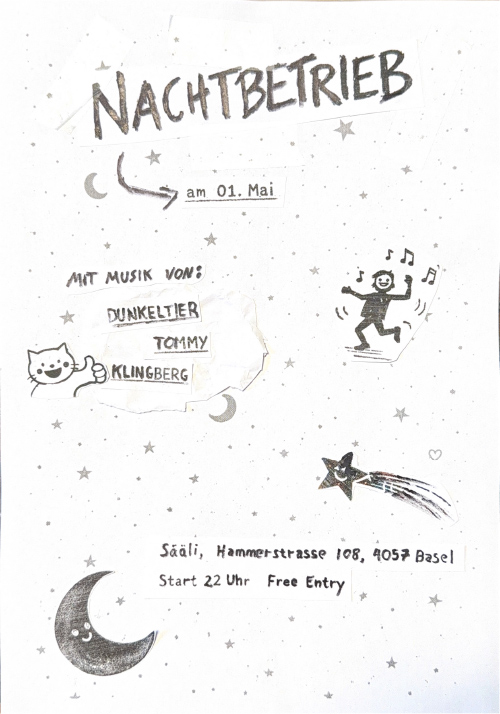 NACHTBETRIEB
am 01. Mai
MIT MUSIK VON:
DUNKELTIER
TOMMY
KLINGBERG
Sääli, Hammerstrasse 108, 4057 Basel
Start 22 Uhr Free Entry